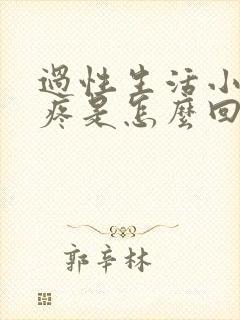 過性生活小
疼是怎麼回
郭辛林